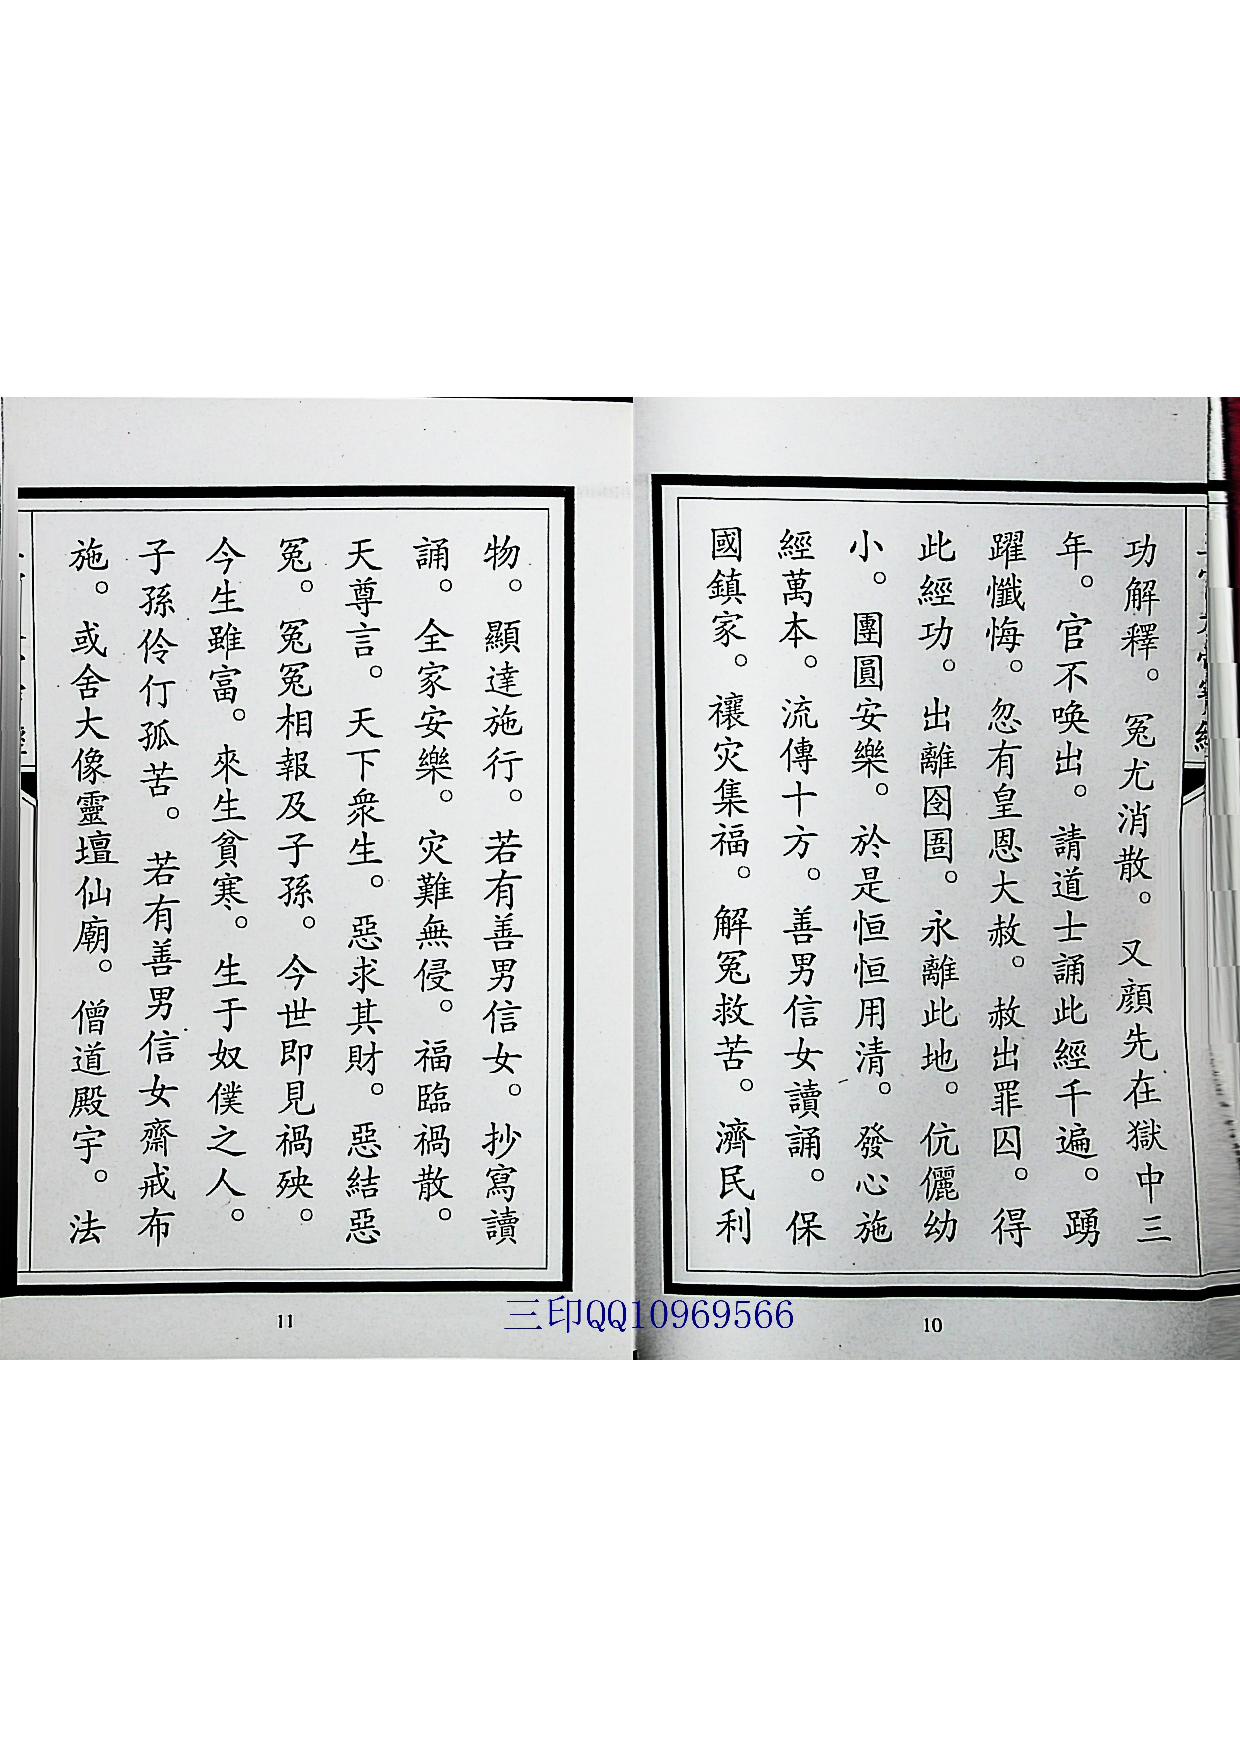 功解釋。冤尤消散。又顔先在獄中三
年。官不唤出。請道士誦此經千遍。踴
躍懺悔。忽有皇恩大赦。赦出罪囚。得
此經功。出離囹圄。永離此地。伉儷幼
小。團圓安樂。於是恒恒用清。發心施
經萬本。流傳十方。善男信女讀誦。保
國鎮家。禳灾集福。解冤救苦。濟民利
10
物。顯達施行。若有善男信女。抄寫讀
誦。全家安樂。灾難無侵。福臨禍散。
天尊言。天下衆生。惡求其財。惡結惡
冤。冤冤相報及子孫。今世即見禍殃。
今生雖富。來生貧寒。生于奴僕之人。
子孫伶仃孤苦。若有善男信女齋戒布
施。或舍大像靈壇仙廟。僧道殿宇。法
11
三印QQ10969566